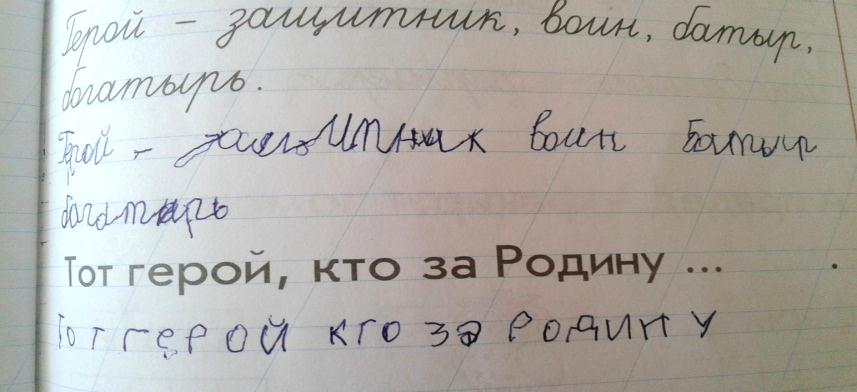 Герой – защитник, воин, батыр,
богатырь.
Герой – защитник воин батыр
богатырь
Тот герой, кто за Родину ...
Тот герой кто за Родину